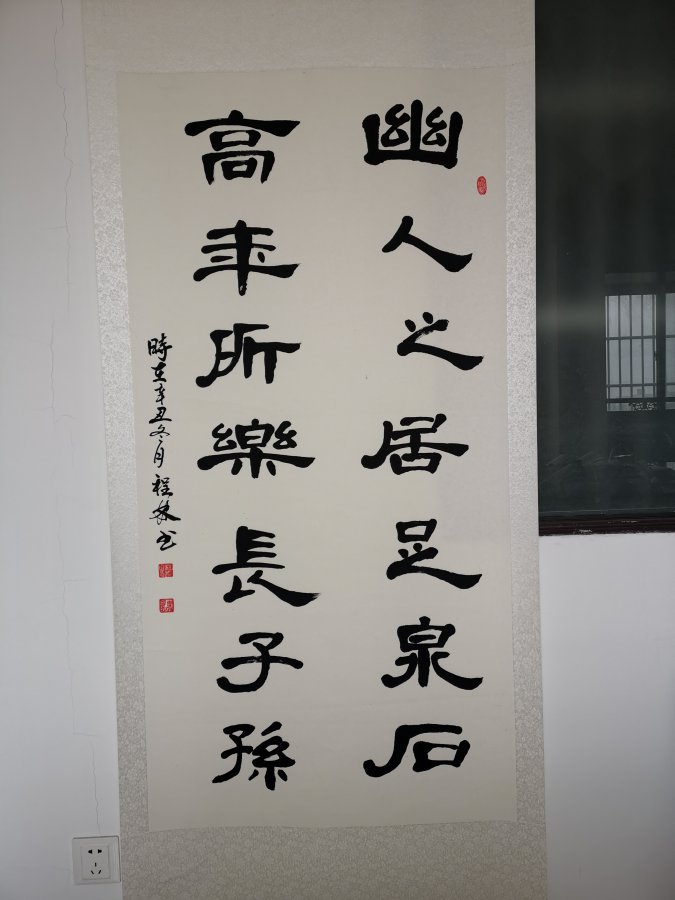 幽人之居足泉石
高年所樂長子孫
時在辛丑冬月程林书